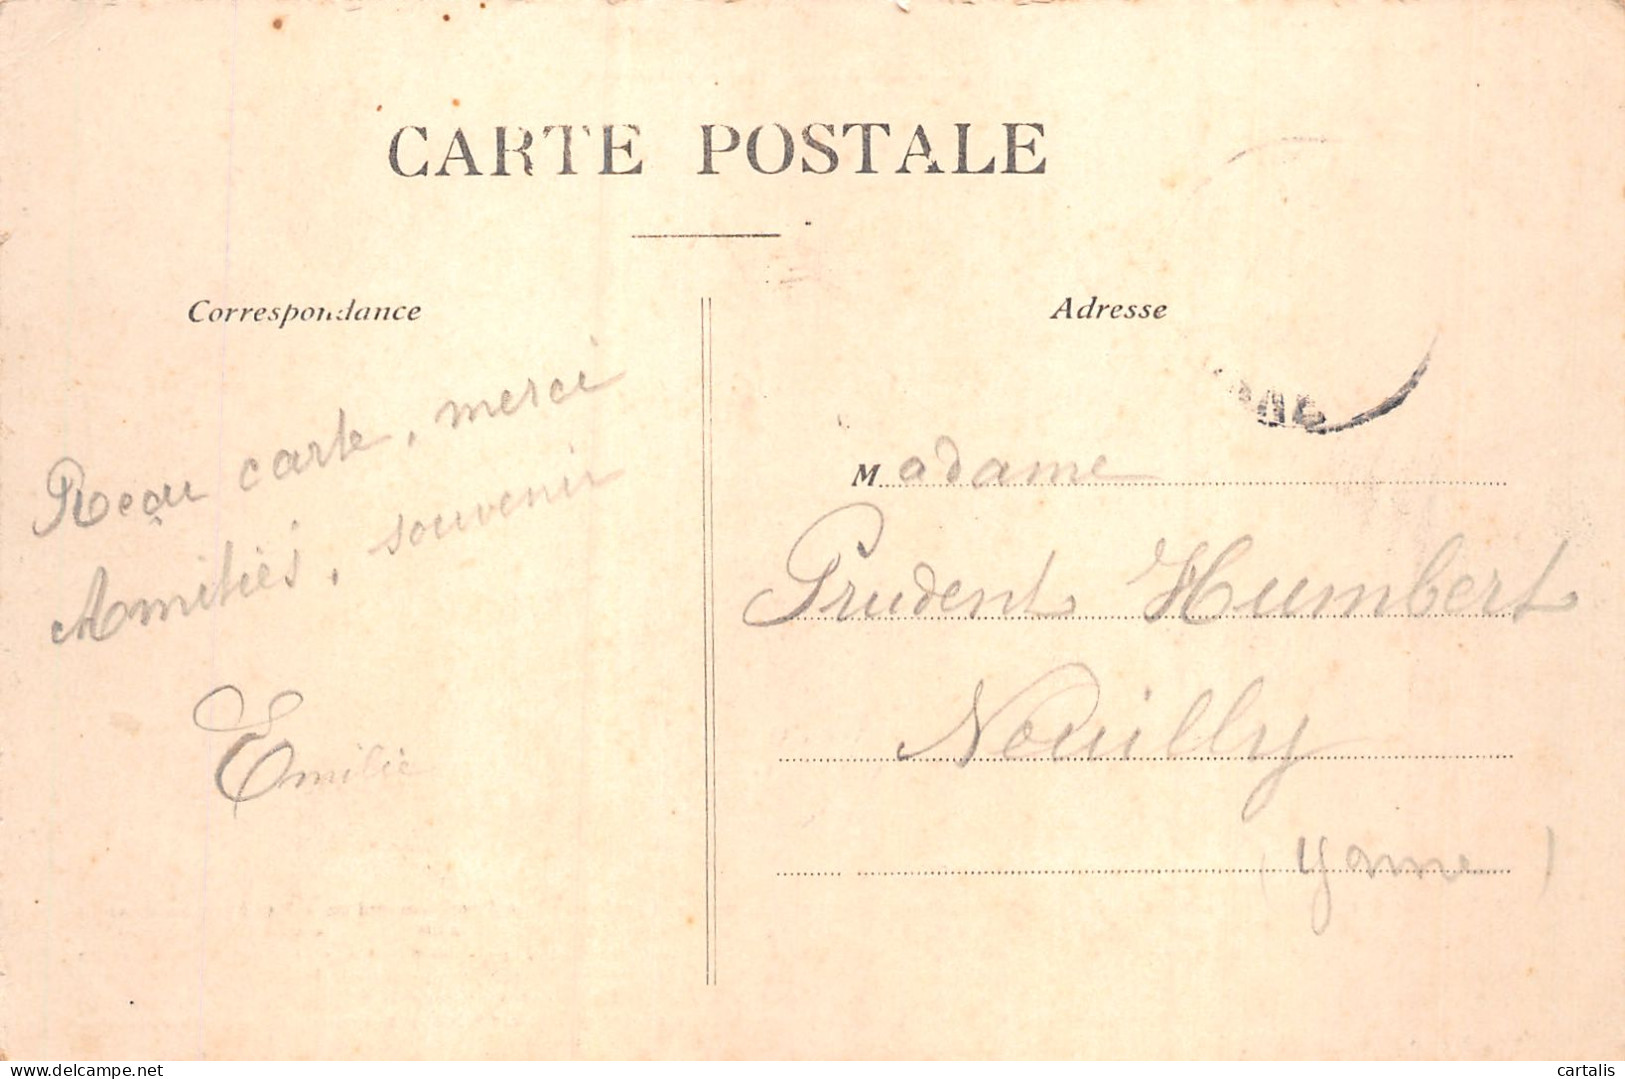 CARTE POSTALE
Correspondance
Reçu carte, merci
Amitiés, souvenir
Emilie
Adresse
Madame
Prudent Humbert
Neuilly
(Yonne)
www.delcampe.net
cartalis